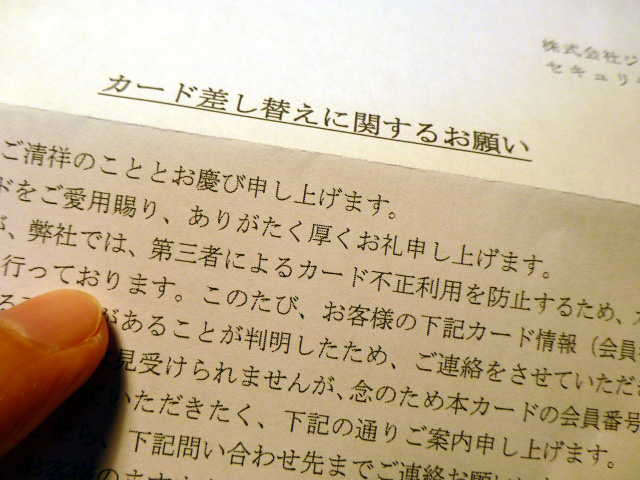 株式会社ジ
セキュリ
カード差し替えに関するお願い
ご清祥のこととお慶び申し上げます。
ドをご愛用賜り、ありがたく厚くお礼申し上げます。
が、弊社では、第三者によるカード不正利用を防止するため、
行っております。このたび、お客様の下記カード情報（会員
があることが判明したため、ご連絡をさせていただき
見受けられませんが、念のため本カードの会員番号
いただきたく、下記の通りご案内申し上げます。
たら、下記問い合わせ先までご連絡お願い
お客様の